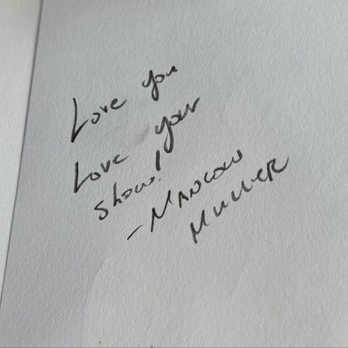 Love you
Love your
show!
- Mancow
Muller